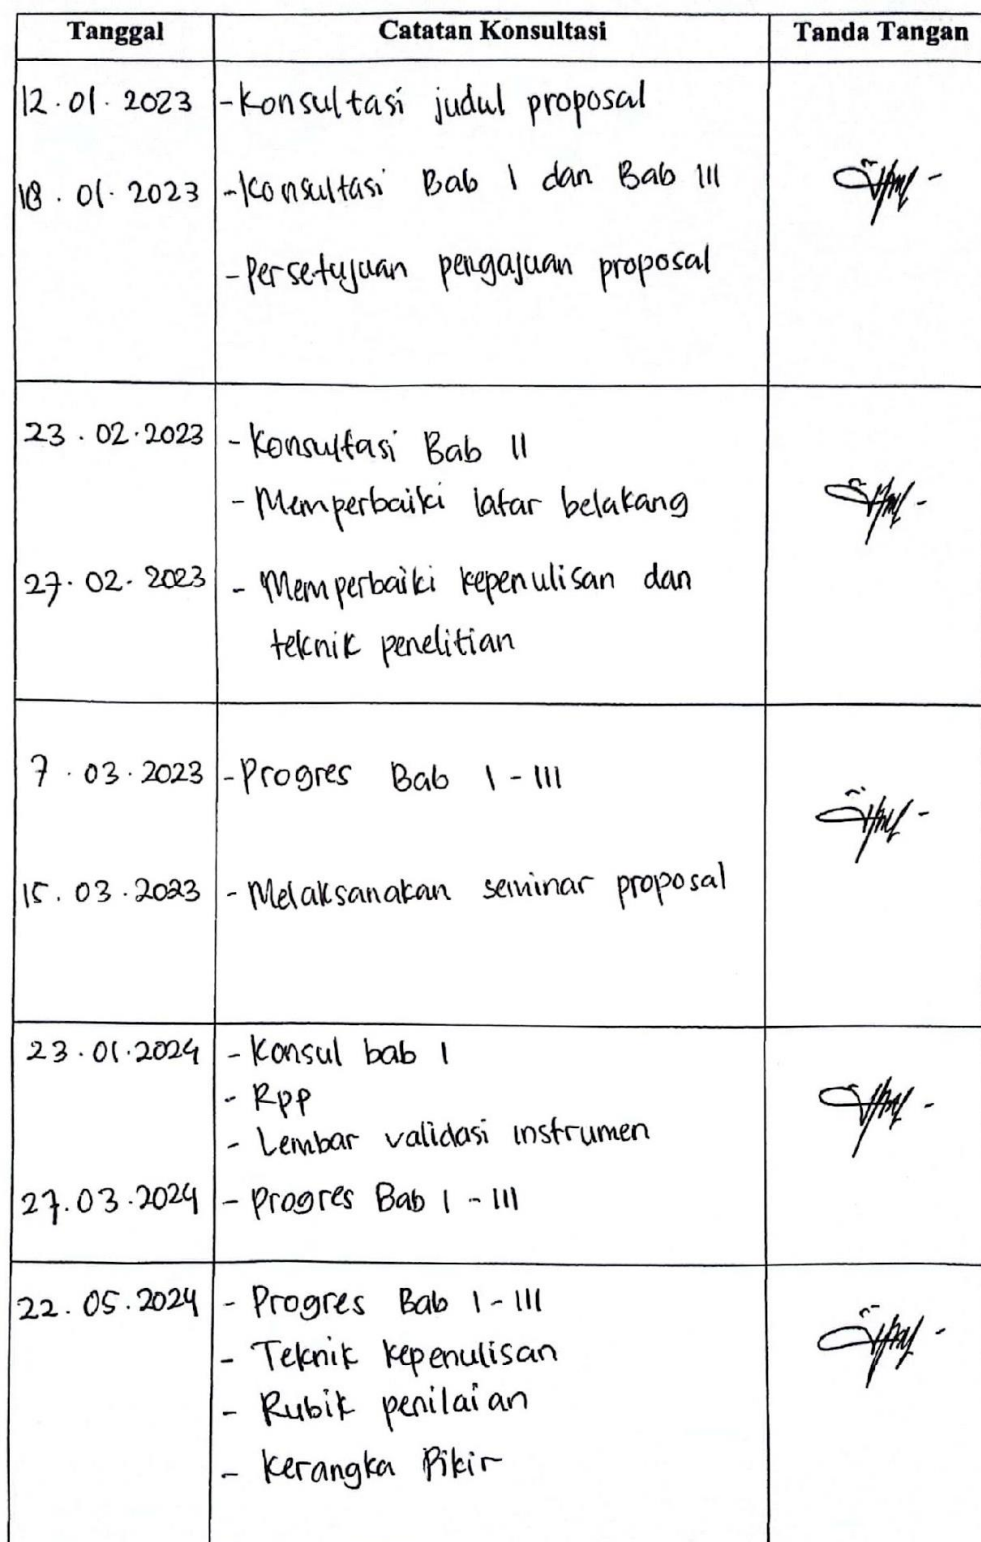 Tanggal Catatan Konsultasi Tanda Tangan
12.01.2023 - Konsultasi judul proposal
18.01.2023 - Konsultasi Bab I dan Bab III
- Persetujuan pengajuan proposal
23.02.2023 - Konsultasi Bab II
- Memperbaiki latar belakang
27.02.2023 - Memperbaiki kepenulisan dan
teknik penelitian
7.03.2023 - Progres Bab I - III
15.03.2023 - Melaksanakan seminar proposal
23.01.2024 - Konsul bab I
- Rpp
- Lembar validasi instrumen
27.03.2024 - Progres Bab I - III
22.05.2024 - Progres Bab I - III
- Teknik kepenulisan
- Rubik penilaian
- Kerangka Pikir